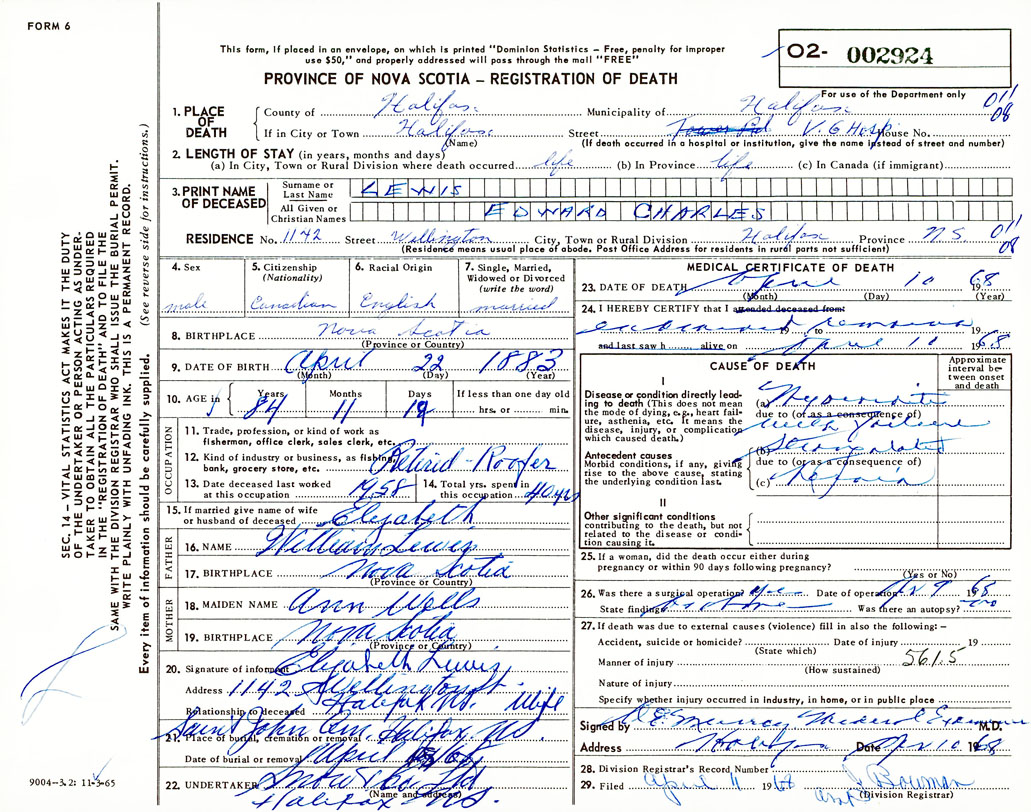 FORM 6
This form, if placed in an envelope, on which is printed "Dominion Statistics – Free, penalty for improper
use $50," and properly addressed will pass through the mail "FREE"
O2- 002924
PROVINCE OF NOVA SCOTIA – REGISTRATION OF DEATH
For use of the Department only
1. PLACE OF DEATH
County of Halifax Municipality of Halifax 011 08
If in City or Town Halifax Street V.G Hosp House No.
(Name) (If death occurred in a hospital or institution, give the name instead of street and number)
2. LENGTH OF STAY (in years, months and days)
(a) In City, Town or Rural Division where death occurred life (b) In Province life (c) In Canada (if immigrant)
3. PRINT NAME OF DECEASED
Surname or Last Name LEWIS
All Given or Christian Names EDWARD CHARLES
RESIDENCE No. 1142 Street Wellington City, Town or Rural Division Halifax Province NS 011 08
(Residence means usual place of abode. Post Office Address for residents in rural parts not sufficient)
4. Sex male
5. Citizenship (Nationality) Canadian
6. Racial Origin English
7. Single, Married, Widowed or Divorced (write the word) married
8. BIRTHPLACE Nova Scotia
(Province or Country)
9. DATE OF BIRTH April 22 1883
(Month) (Day) (Year)
10. AGE in Years 84 Months 11 Days 19 If less than one day old hrs. or min.
OCCUPATION
11. Trade, profession, or kind of work as fisherman, office clerk, sales clerk, etc.
12. Kind of industry or business, as fishing, bank, grocery store, etc. Retired - Roofer
13. Date deceased last worked at this occupation 1958
14. Total yrs. spent in this occupation 40 yrs
15. If married give name of wife or husband of deceased Elizabeth
FATHER
16. NAME William Lewis
17. BIRTHPLACE Nova Scotia
(Province or Country)
MOTHER
18. MAIDEN NAME Ann Wells
19. BIRTHPLACE Nova Scotia
(Province or Country)
20. Signature of informant Elizabeth Lewis
Address 1142 Wellington St.
Halifax NS.
Relationship to deceased Wife
21. Place of burial, cremation or removal Saint John Cem. Halifax, NS.
Date of burial or removal April
22. UNDERTAKER Snow & Co Ltd
(Name and address)
Halifax NS.
MEDICAL CERTIFICATE OF DEATH
23. DATE OF DEATH April 10 1968
(Month) (Day) (Year)
24. I HEREBY CERTIFY that I attended deceased from:
examined 19 to remains 19
and last saw h alive on April 10 1968
CAUSE OF DEATH
Approximate interval between onset and death
I
Disease or condition directly leading to death (This does not mean the mode of dying, e.g., heart failure, asthenia, etc. It means the disease, injury, or complication which caused death.)
(a)
due to (or as a consequence of)
with failure
Antecedent causes
Morbid conditions, if any, giving rise to the above cause, stating the underlying condition last.
(b) Strangulated
due to (or as a consequence of)
(c) Hernia
II
Other significant conditions contributing to the death, but not related to the disease or condition causing it.
25. If a woman, did the death occur either during pregnancy or within 90 days following pregnancy?
(Yes or No)
26. Was there a surgical operation? Yes Date of operation 9 1968
State findings as above Was there an autopsy? no
27. If death was due to external causes (violence) fill in also the following: –
Accident, suicide or homicide? Date of injury 19
(State which)
Manner of injury 561.5
(How sustained)
Nature of injury
Specify whether injury occurred in industry, in home, or in public place
Signed by Murray Medical Examiner M.D.
Address Halifax Date Ap 10 1968
28. Division Registrar's Record Number
29. Filed April 11 1968 Bowman
(Division Registrar)
SEC. 14 – VITAL STATISTICS ACT MAKES IT THE DUTY
OF THE UNDERTAKER OR PERSON ACTING AS UNDER-
TAKER TO OBTAIN ALL THE PARTICULARS REQUIRED
IN THE "REGISTRATION OF DEATH" AND TO FILE THE
SAME WITH THE DIVISION REGISTRAR WHO SHALL ISSUE THE BURIAL PERMIT.
WRITE PLAINLY WITH UNFADING INK. THIS IS A PERMANENT RECORD.
Every item of information should be carefully supplied. (See reverse side for instructions.)
9004-3.2: 11-3-65